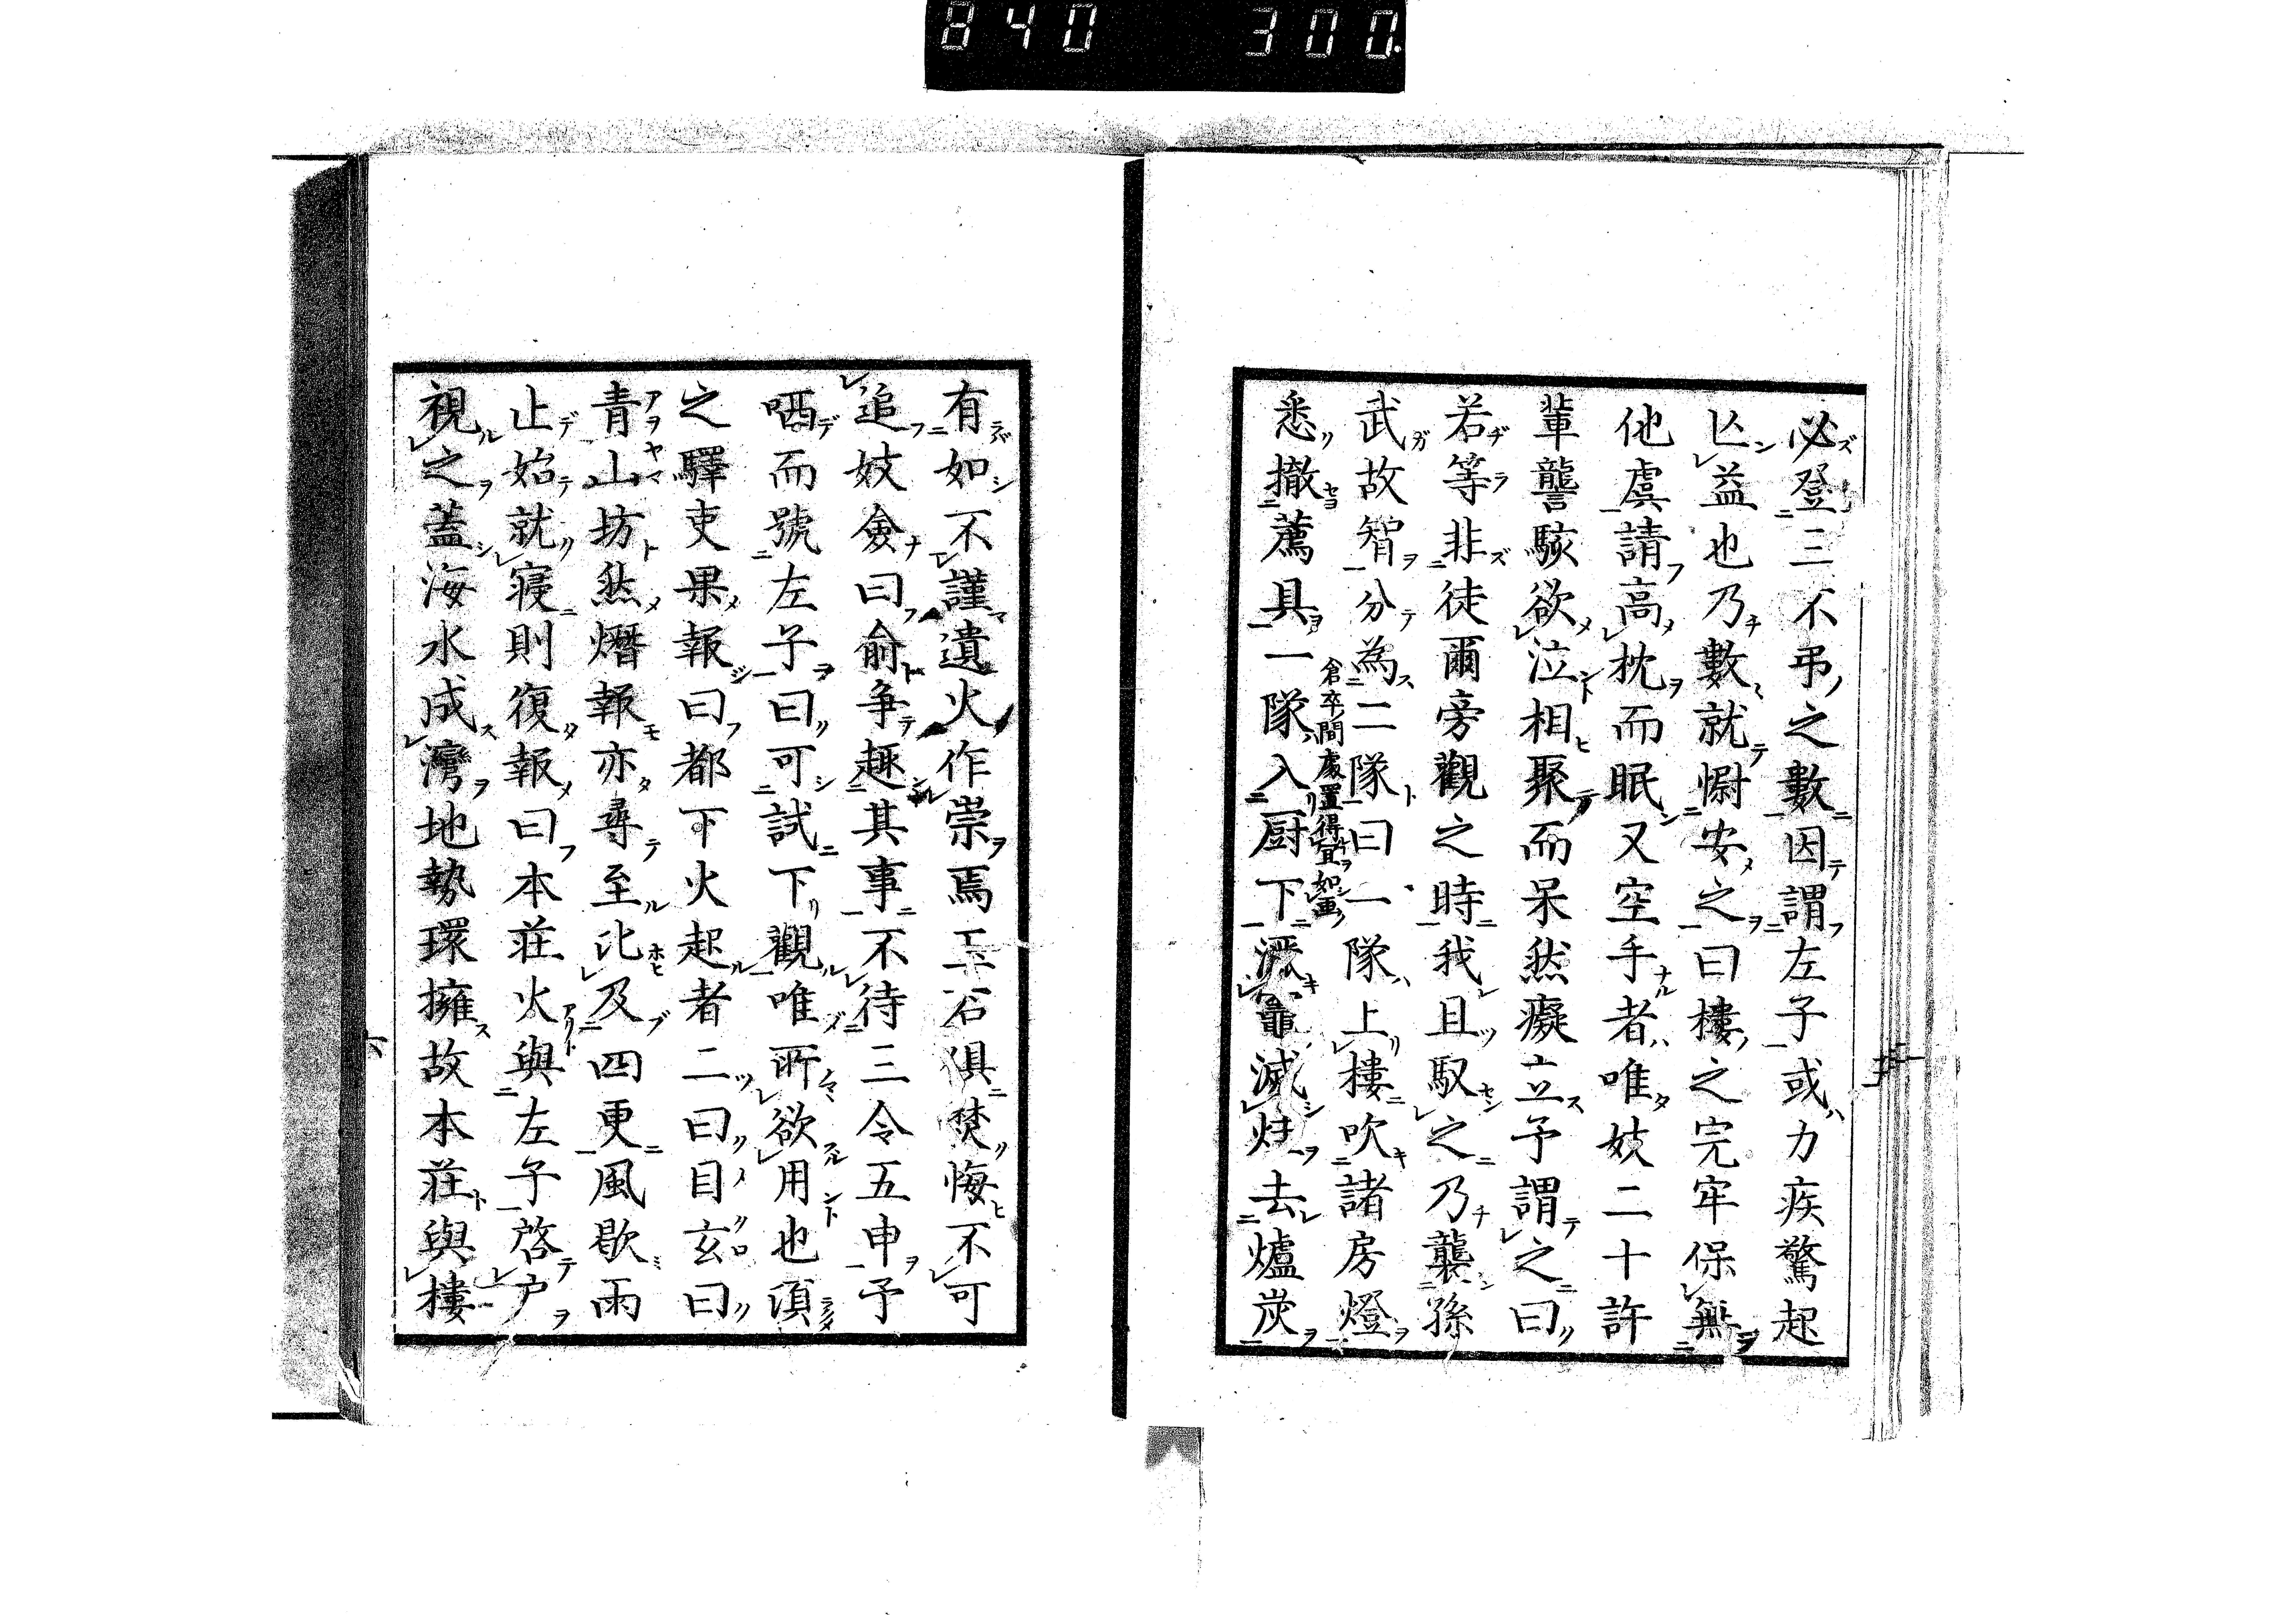 840 300
必登三不弔之數因謂左子或力疾驚起
亾益也乃數就慰安之曰樓之完牢保無
他虞請高枕而眠又空手者唯妓二十許
輩讋駭欲泣相聚而呆然癡立予謂之曰
若等非徒爾旁觀之時我且馭之乃襲孫
武故智分為二隊曰一隊上樓吹諸房燈
倉卒間處置得宜如畫
悉撤薦具一隊入厨下滅炷去爐炭
有如不謹遺火作崇焉玉石俱焚悔不可
追妓僉曰俞争趣其事不待三令五申予
哂而號左子曰可試下觀唯所欲用也須
之驛吏果報曰都下火起者二曰目玄曰
青山坊然熸報亦尋至比及四更風歇雨
止始就寢則復報曰本莊火與左子啓戶
視之蓋海水成灣地勢環擁故本莊與樓
六